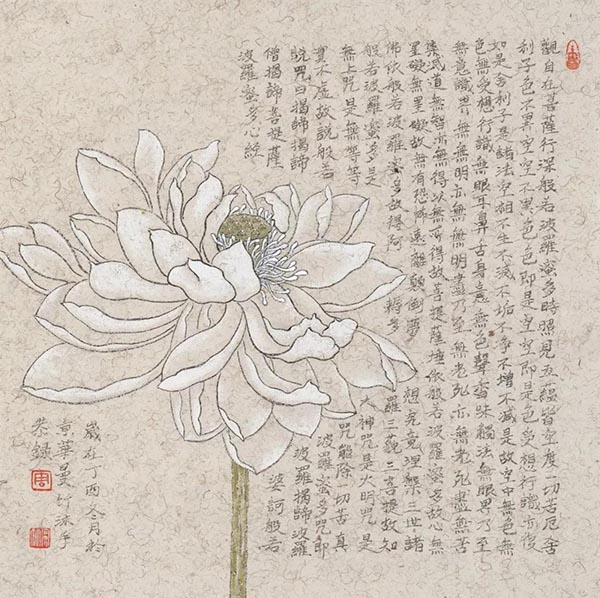 觀自在菩薩行深般若波羅蜜多時照見五蘊皆空度一切苦厄舍
利子色不異空空不異色色即是空空即是色受想行識亦復
如是舍利子是諸法空相不生不滅不垢不淨不增不減是故空中無色無
色無受想行識無眼耳鼻舌身意無色聲香味觸法無眼界乃至
無意識界無無明亦無無明盡乃至無老死亦無老死盡無苦
集滅道無智亦無得以無所得故菩提薩埵依般若波羅蜜多故心無
罣礙無罣礙故無有恐怖遠離顛倒夢
想究竟涅槃三世諸
佛依般若波羅蜜多故得阿耨多
羅三藐三菩提故知
般若波羅蜜多是
大神咒是大明咒是
無上咒是無等等
咒能除一切苦真
實不虛故說般若
波羅蜜多咒即
說咒曰揭諦揭諦
波羅揭諦波羅
僧揭諦菩提薩
婆訶般若
波羅蜜多心經
歲在丁酉冬月於
章華曼竹
恭錄
周